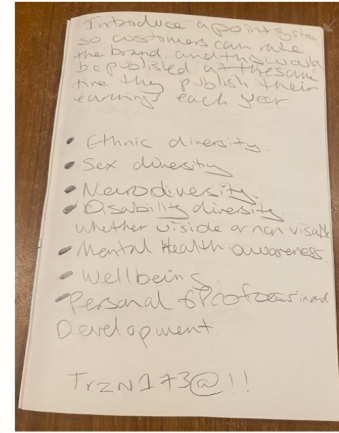 Introduce a point system
so customers can rate
the brand and this would
be published at the same
time they publish their
earnings each year
Ethnic diversity.
Sex diversity
Neurodiversity.
Disability diversity.
whether visible or non visible
Mental Health awareness.
Wellbeing
Personal & Professional
Development.
TrzN173@!!